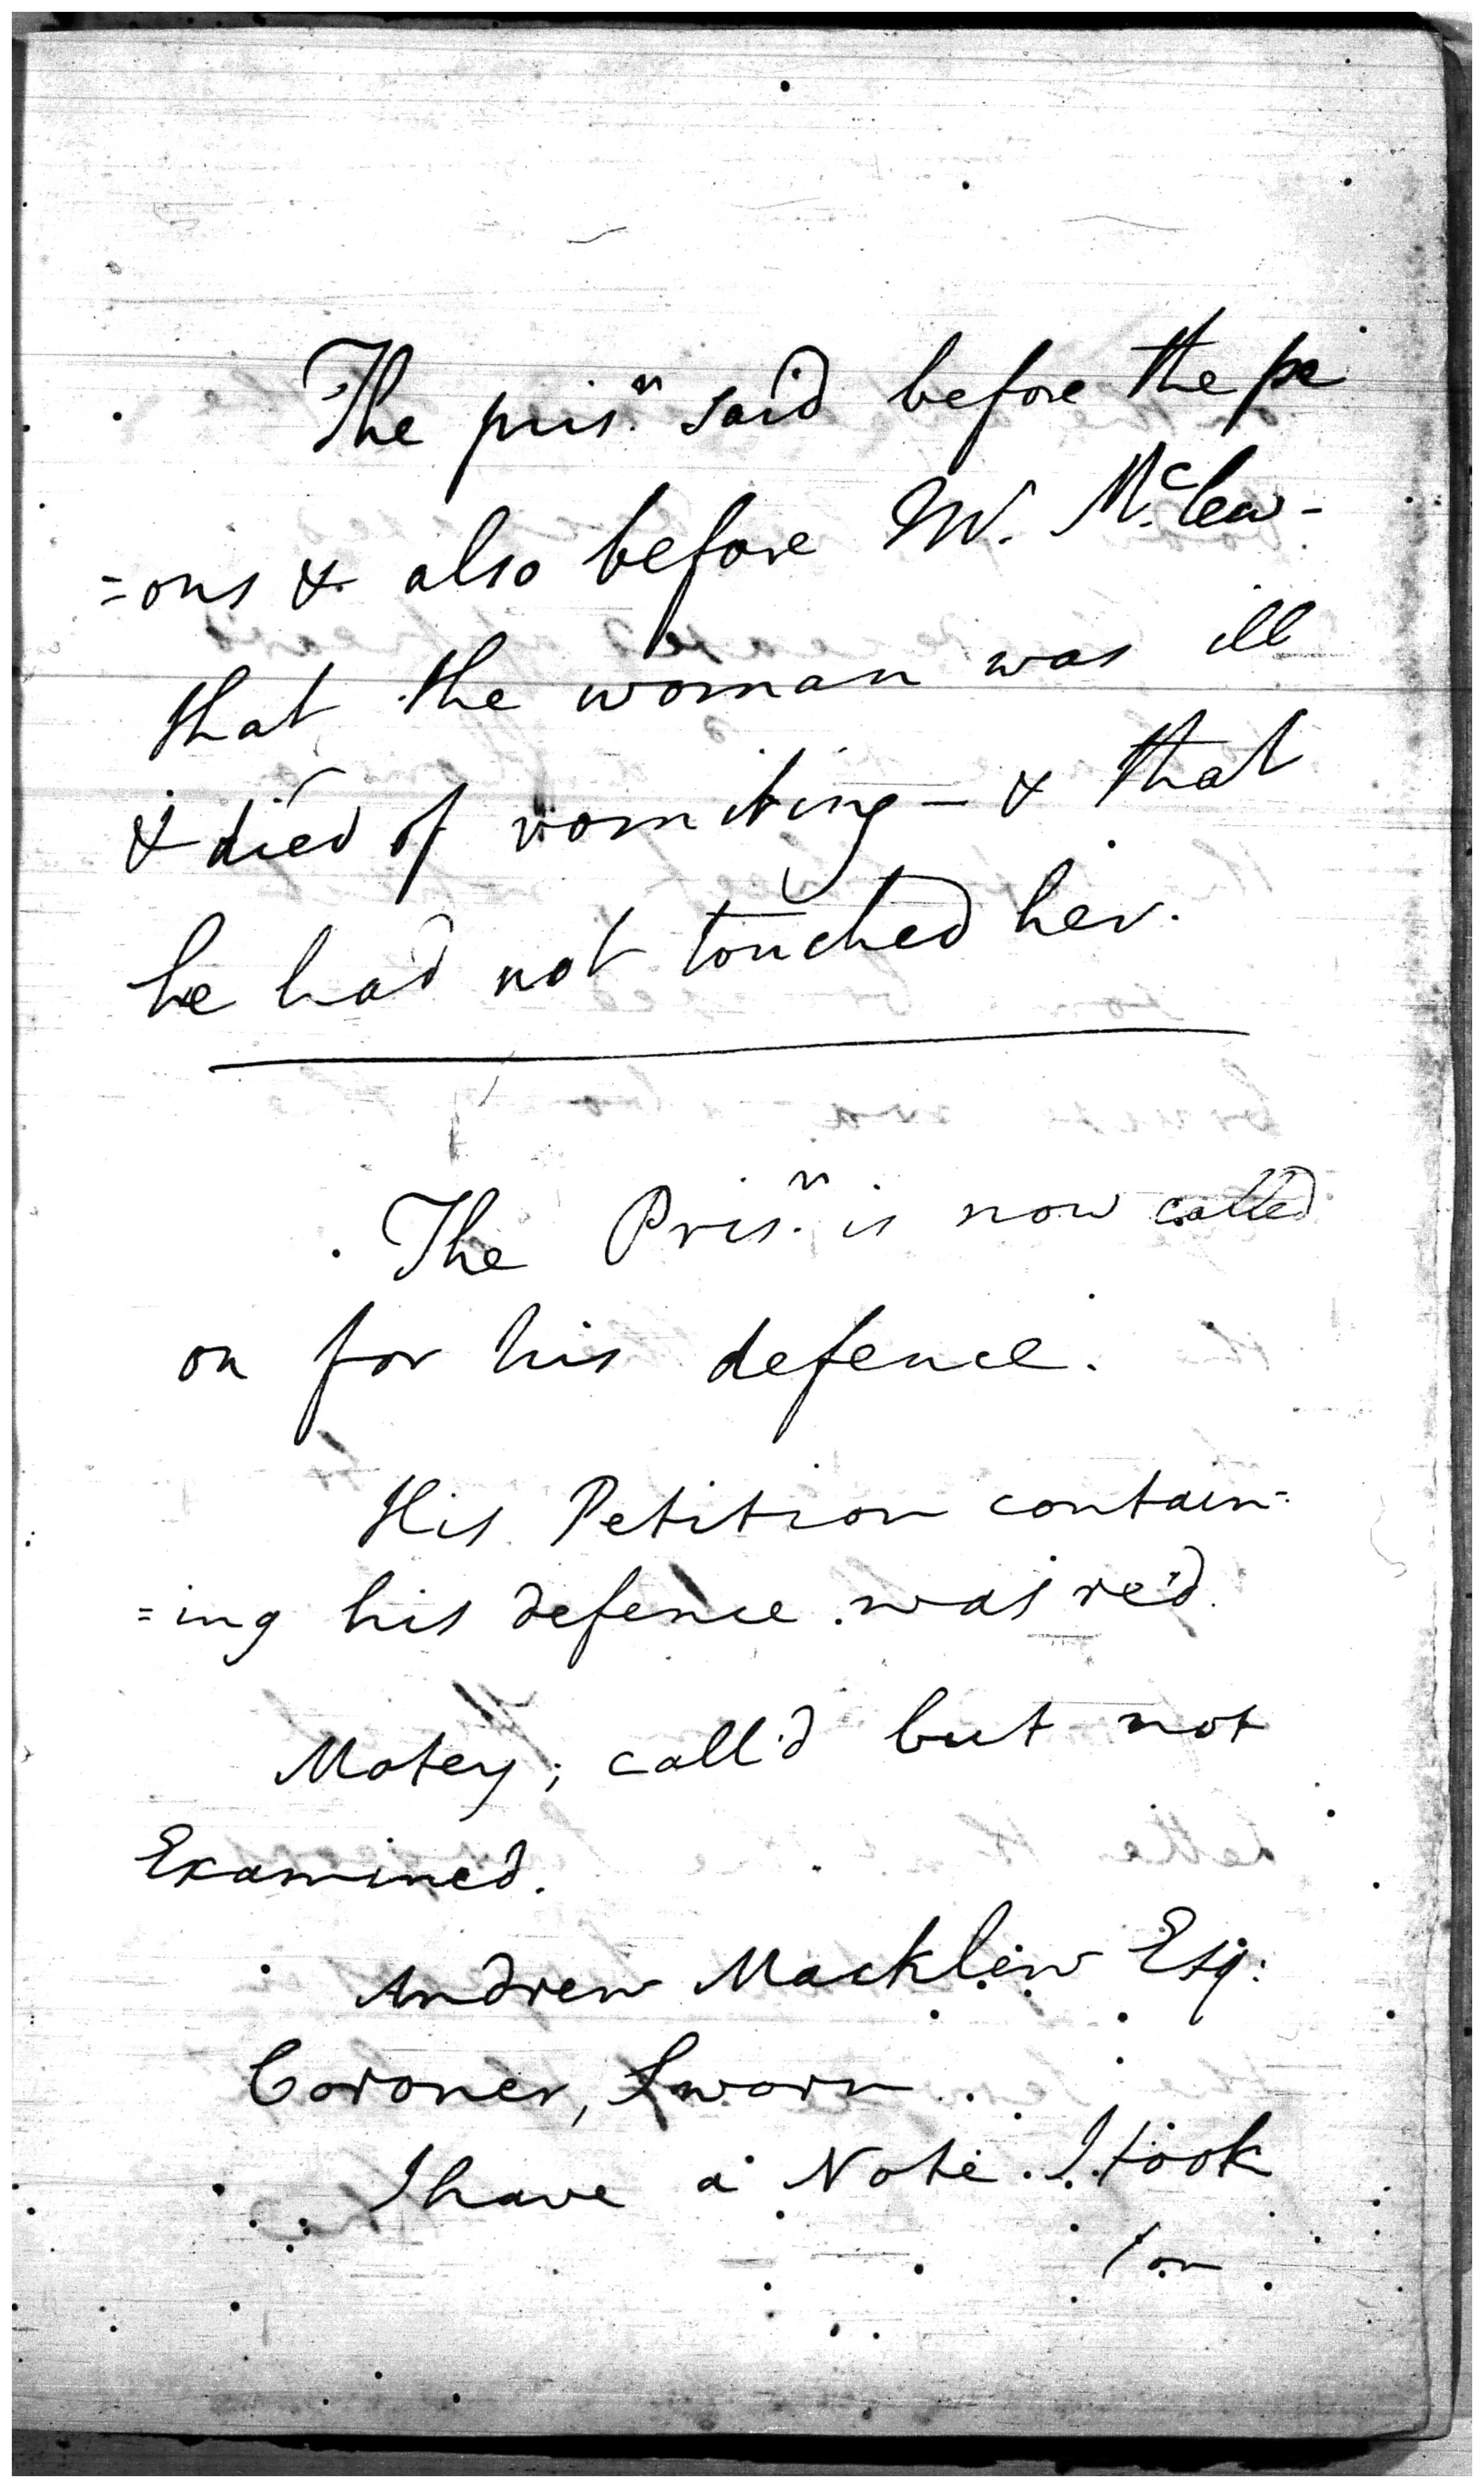 The pris.n said before the pe
=ons & also before Mr. McClew-
that the woman was ill
& died of vomiting - & that
he had not touched her.
The Pris.n is now called
on for his defence.
His Petition contain-
=ing his defence was re'd.
Motey; call'd but not
Examined.
Andrew Macklew Esq:
Coroner, Sworn.
I have a Note I took
/on